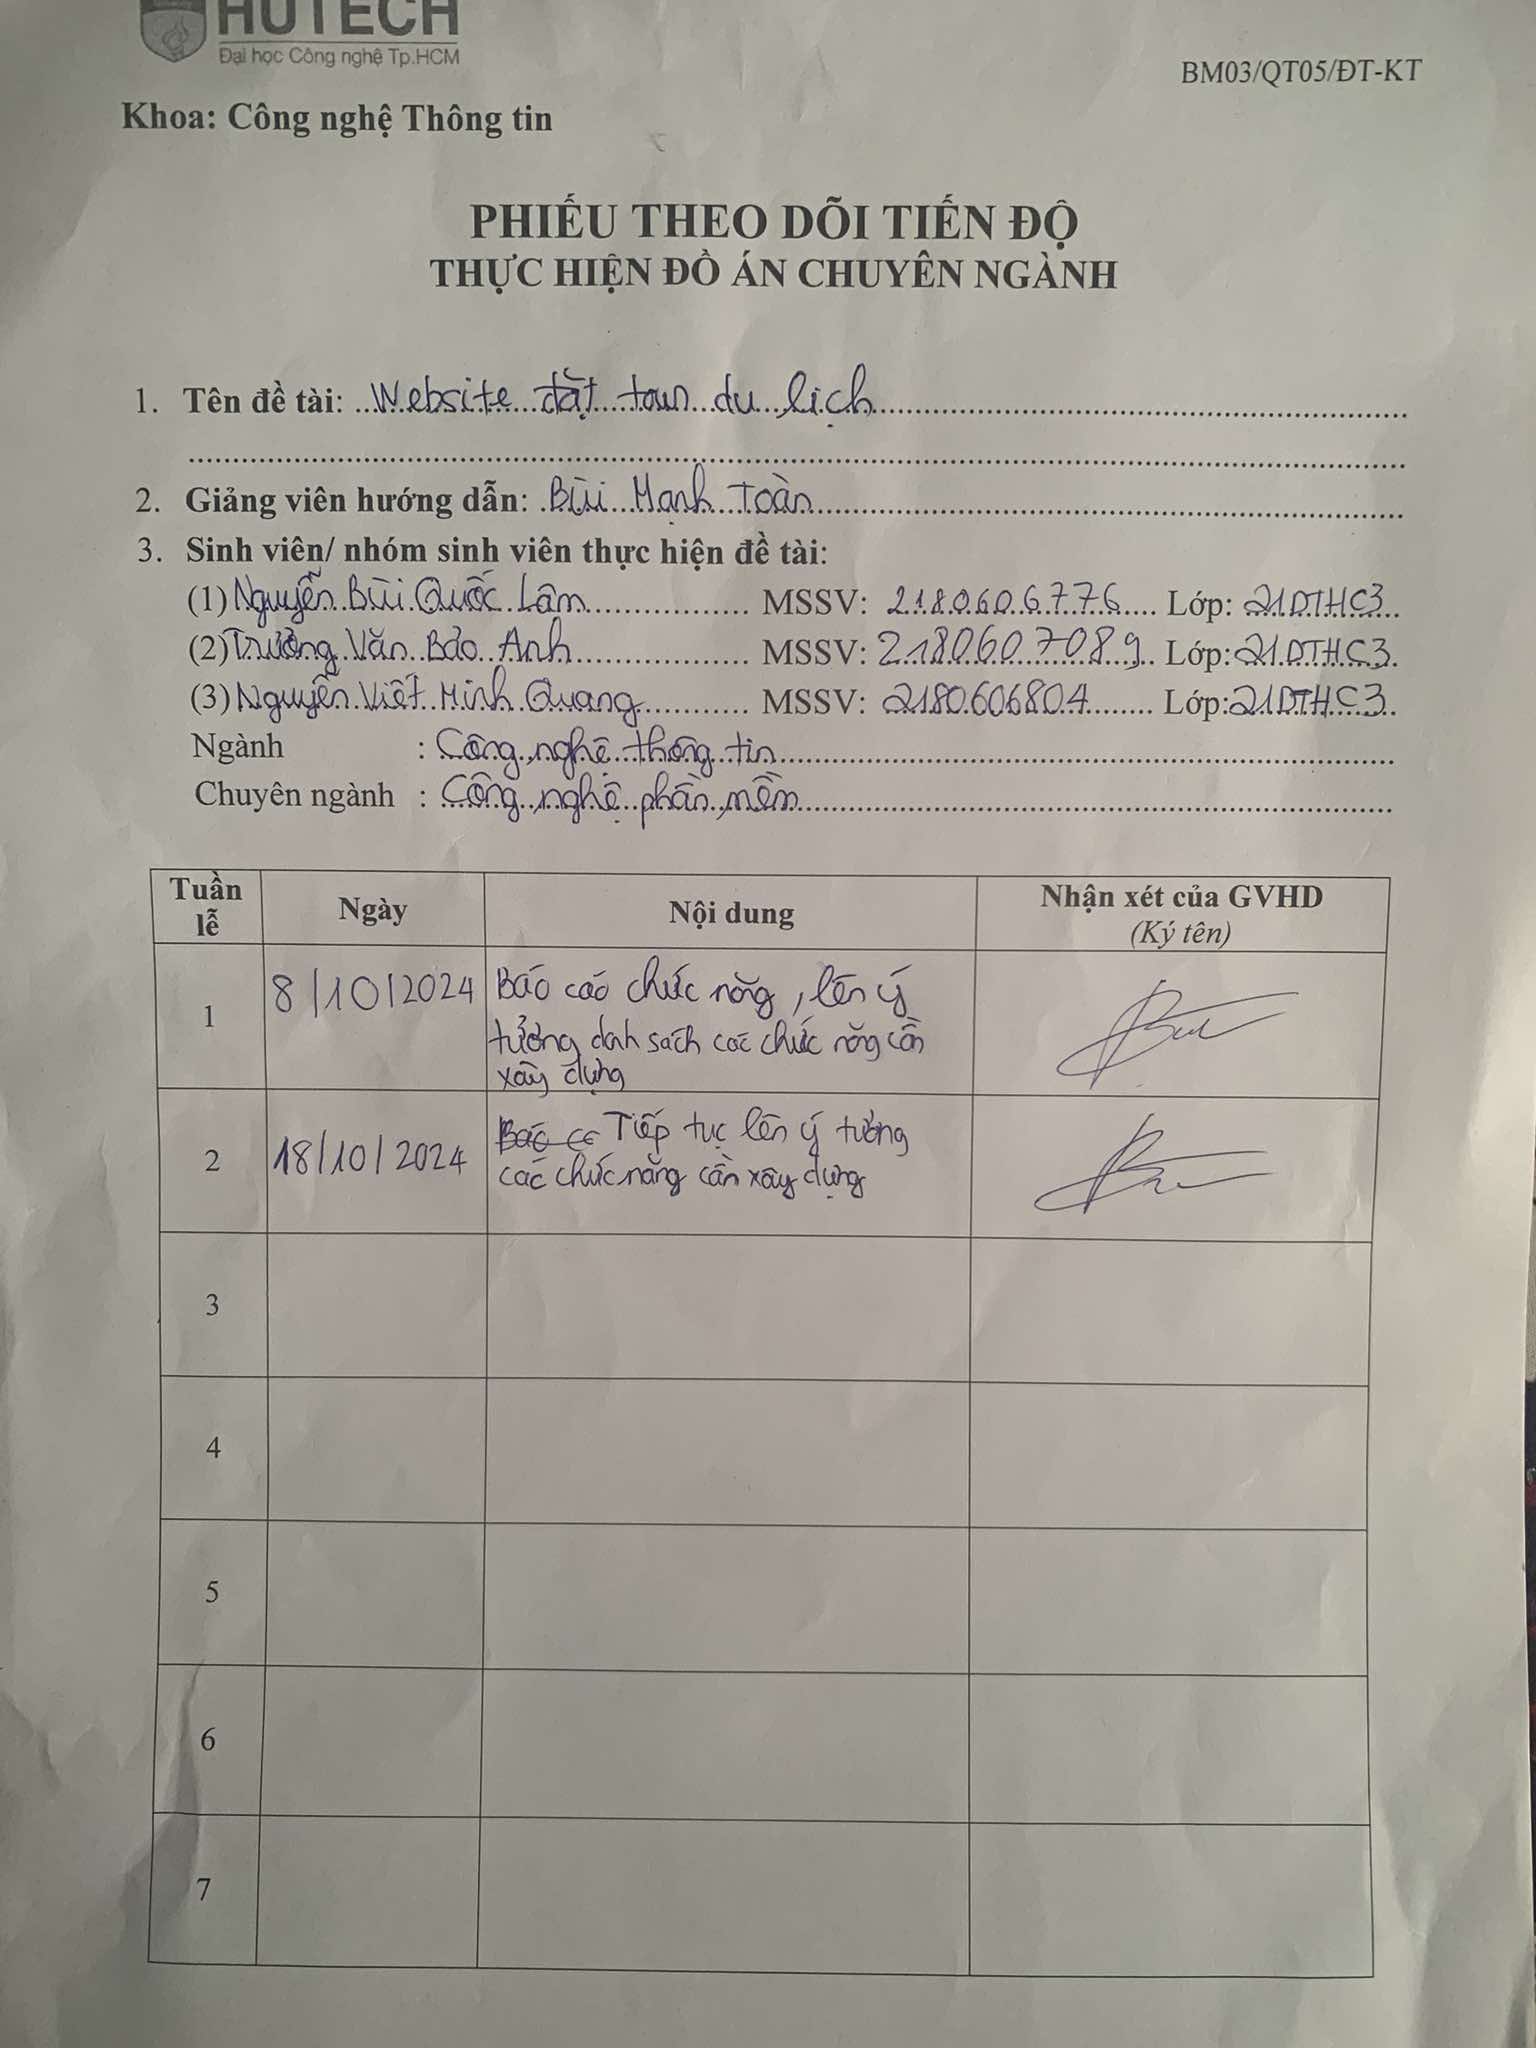 HUTECH
Đại học Công nghệ Tp.HCM
BM03/QT05/ĐT-KT
Khoa: Công nghệ Thông tin
PHIẾU THEO DÕI TIẾN ĐỘ
THỰC HIỆN ĐỒ ÁN CHUYÊN NGÀNH
1. Tên đề tài: Website đặt tour du lịch
2. Giảng viên hướng dẫn: Bùi Mạnh Toàn
3. Sinh viên/ nhóm sinh viên thực hiện đề tài:
(1) Nguyễn Bùi Quốc Lâm MSSV: 2180606776 Lớp: 21DTHC3
(2) Trương Văn Bảo Anh MSSV: 2180607089 Lớp: 21DTHC3
(3) Nguyễn Viết Minh Quang MSSV: 2180606804 Lớp: 21DTHC3
Ngành : Công nghệ thông tin
Chuyên ngành : Công nghệ phần mềm
Tuần lễ Ngày Nội dung Nhận xét của GVHD
(Ký tên)
1 8/10/2024 Báo cáo chức năng, lên ý
tưởng danh sách các chức năng cần
xây dựng
2 18/10/2024 Báo cc Tiếp tục lên ý tưởng
các chức năng cần xây dựng
3
4
5
6
7